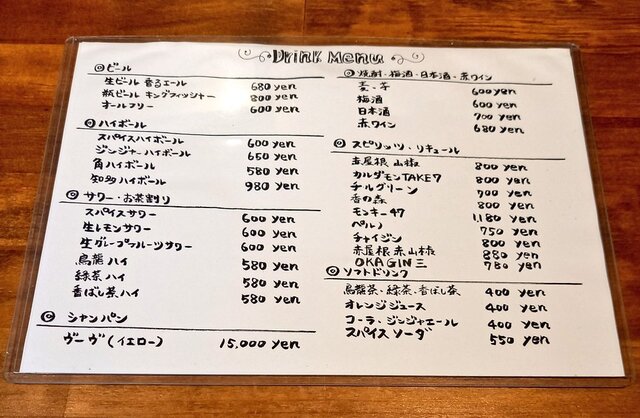 Drink Menu
◎ビール
生ビール 香るエール 680 yen
瓶ビール キングフィッシャー 800 yen
オールフリー 600 yen
◎ハイボール
スパイスハイボール 600 yen
ジンジャーハイボール 650 yen
角ハイボール 580 yen
知多ハイボール 980 yen
◎サワー・お茶割り
スパイスサワー 600 yen
生レモンサワー 600 yen
生グレープフルーツサワー 600 yen
烏龍ハイ 580 yen
緑茶ハイ 580 yen
香ばし茶ハイ 580 yen
◎シャンパン
ヴーヴ(イエロー) 15,000 yen
◎焼酎・梅酒・日本酒・赤ワイン
麦・芋 600 yen
梅酒 600 yen
日本酒 700 yen
赤ワイン 680 yen
◎スピリッツ・リキュール
赤屋根 山椒 800 yen
カルダモンTAKE7 800 yen
チルグリーン 700 yen
香の森 800 yen
モンキー47 1,180 yen
ペルノ 750 yen
チャイジン 800 yen
赤屋根 赤山椒 880 yen
OKA GIN 三 780 yen
◎ソフトドリンク
烏龍茶・緑茶・香ばし茶 400 yen
オレンジジュース 400 yen
コーラ・ジンジャエール 400 yen
スパイスソーダ 550 yen